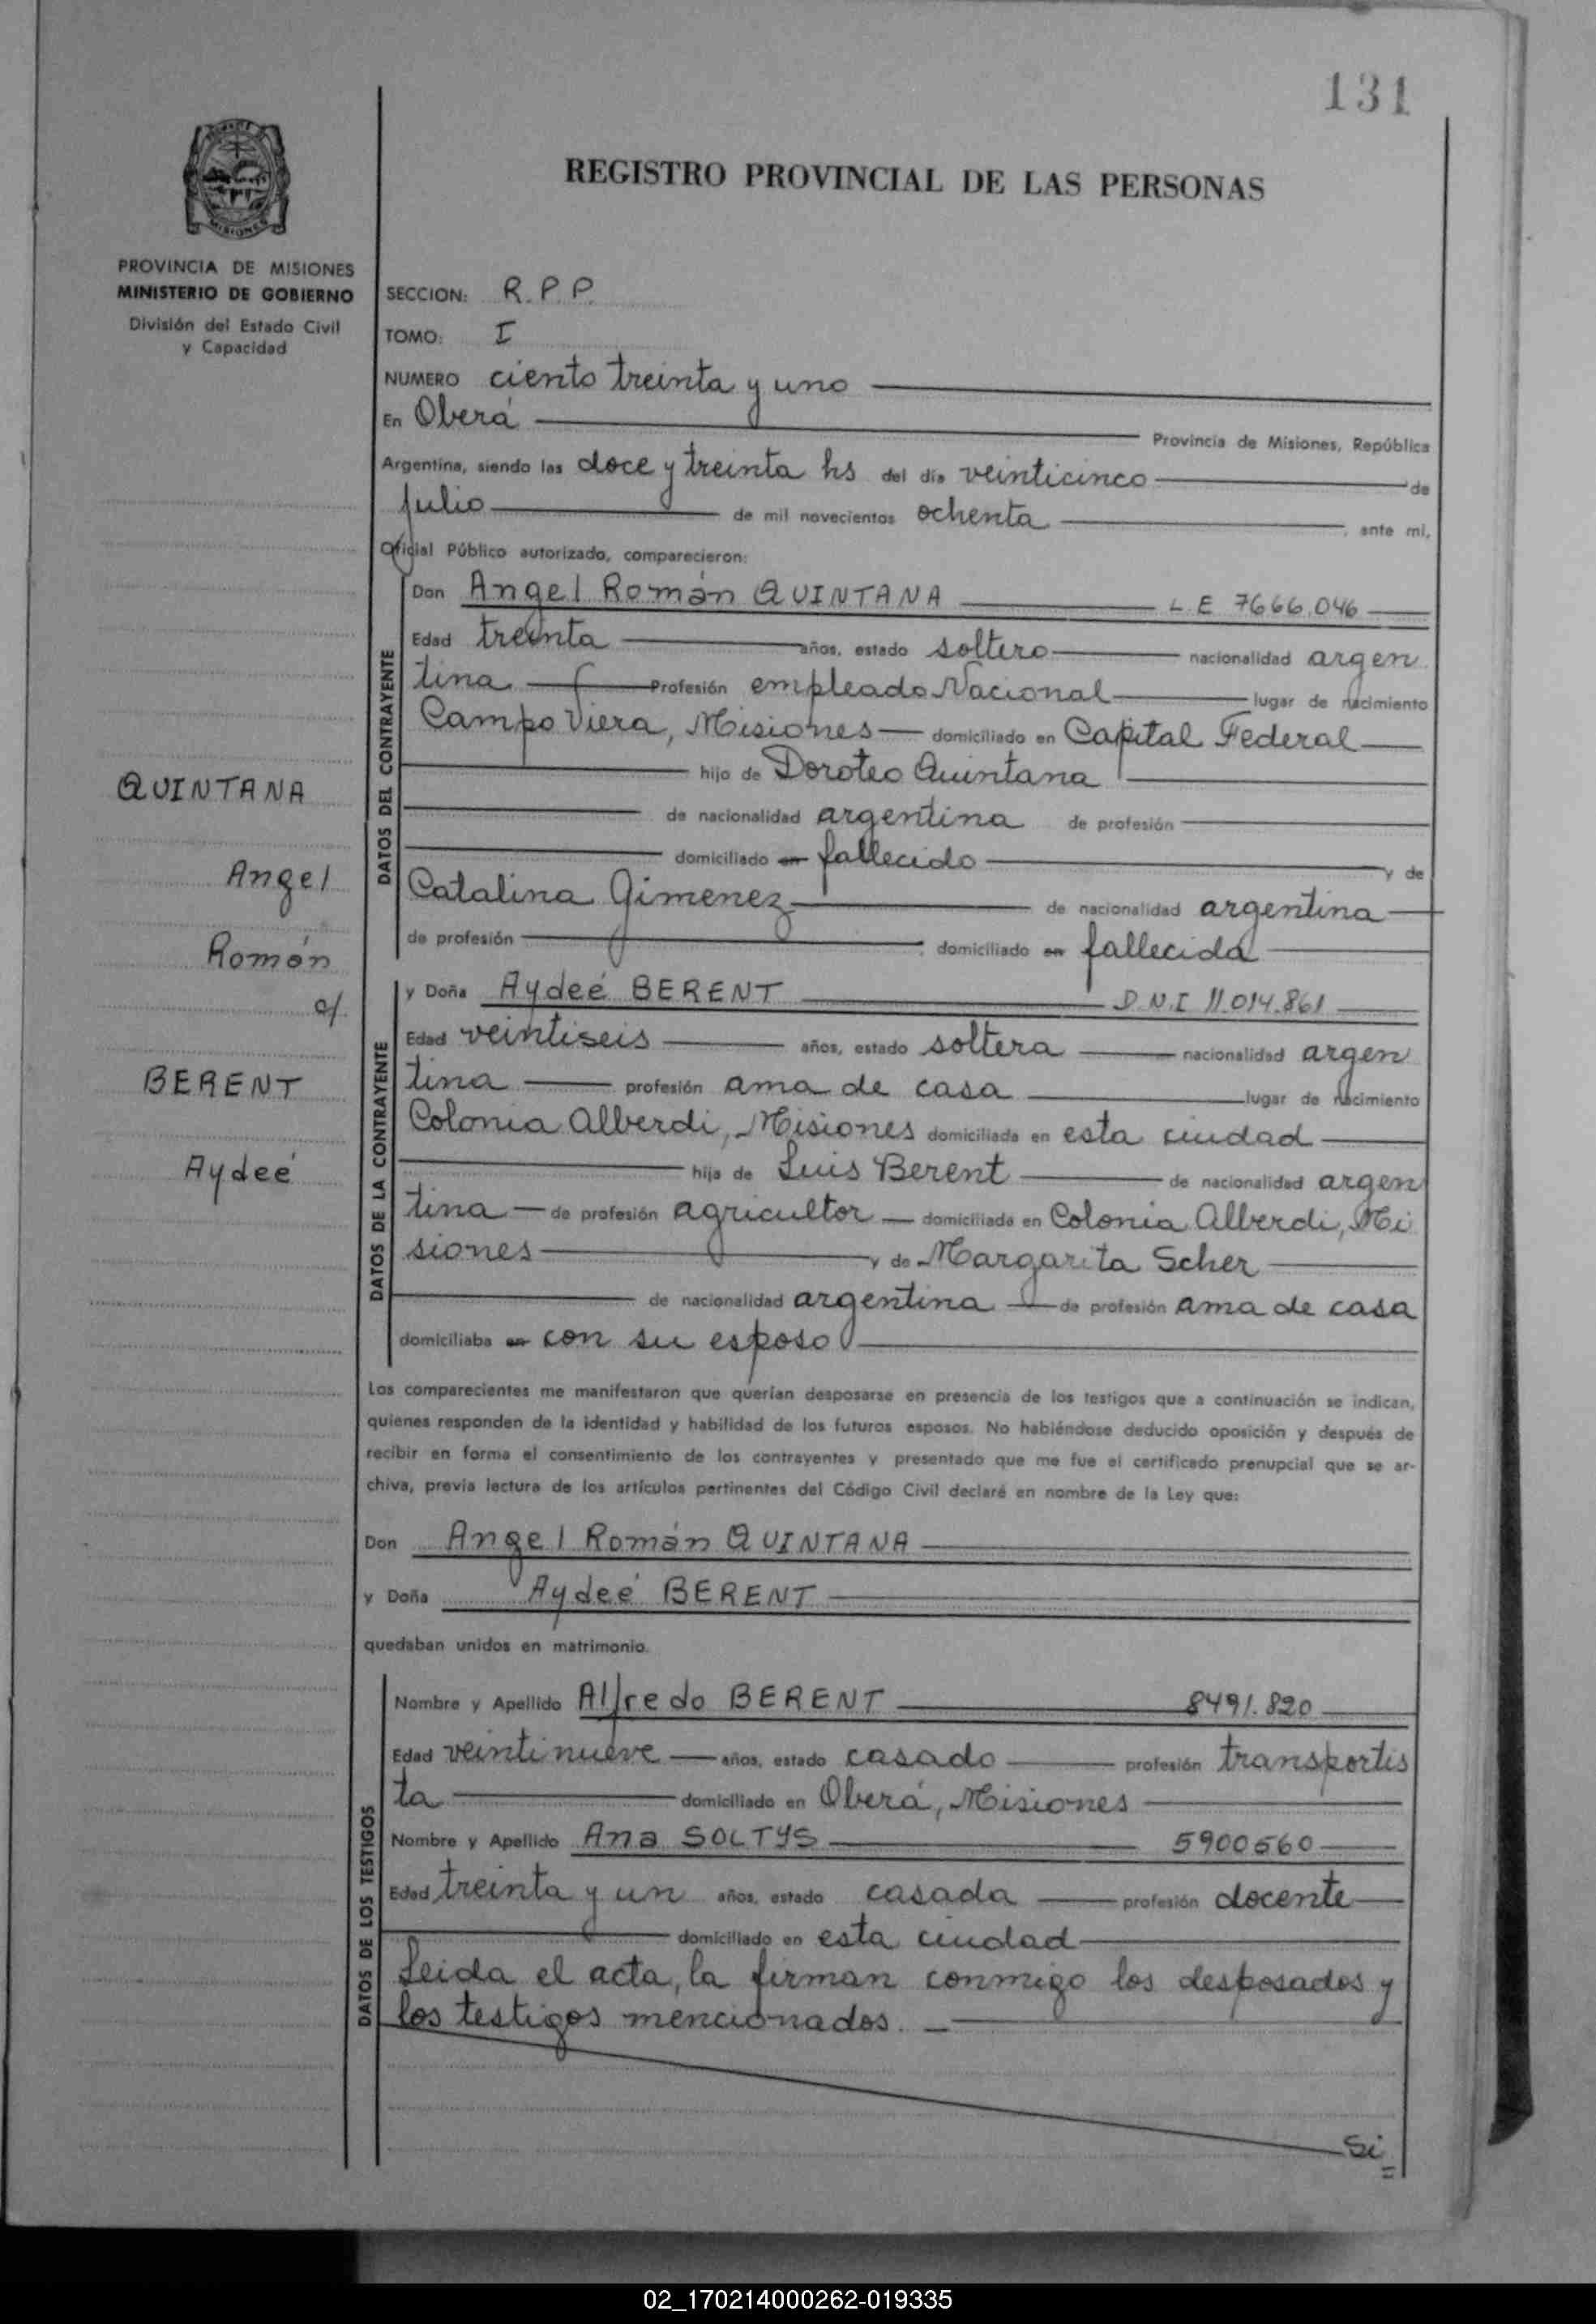 131
REGISTRO PROVINCIAL DE LAS PERSONAS
MISIONES
PROVINCIA DE MISIONES
MINISTERIO DE GOBIERNO
División del Estado Civil
y Capacidad
SECCION: R.P.P.
TOMO: I
NUMERO ciento treinta y uno
En Oberá Provincia de Misiones, República
Argentina, siendo las doce y treinta hs del día veinticinco de
julio de mil novecientos ochenta, ante mi,
Oficial Público autorizado, comparecieron:
DATOS DEL CONTRAYENTE
Don Angel Román QUINTANA L.E 7666.046
Edad treinta años, estado soltero nacionalidad argen
tina Profesión empleado Nacional lugar de nacimiento
Campo Viera, Misiones domiciliado en Capital Federal
hijo de Doroteo Quintana
de nacionalidad argentina de profesión
domiciliado en fallecido y de
Catalina Gimenez de nacionalidad argentina
de profesión domiciliado en fallecida
QUINTANA
Angel
Román
c/
BERENT
Aydeé
DATOS DE LA CONTRAYENTE
y Doña Aydeé BERENT D.N.I 11.014.861
Edad veintiseis años, estado soltera nacionalidad argen
tina profesión ama de casa lugar de nacimiento
Colonia Alberdi, Misiones domiciliada en esta ciudad
hija de Luis Berent de nacionalidad argen
tina de profesión agricultor domiciliado en Colonia Alberdi, Mi
siones y de Margarita Scher
de nacionalidad argentina de profesión ama de casa
domiciliaba en con su esposo
Los comparecientes me manifestaron que querían desposarse en presencia de los testigos que a continuación se indican,
quienes responden de la identidad y habilidad de los futuros esposos. No habiéndose deducido oposición y después de
recibir en forma el consentimiento de los contrayentes y presentado que me fue el certificado prenupcial que se ar-
chiva, previa lectura de los artículos pertinentes del Código Civil declaré en nombre de la Ley que:
Don Angel Román QUINTANA
y Doña Aydeé BERENT
quedaban unidos en matrimonio.
DATOS DE LOS TESTIGOS
Nombre y Apellido Alfredo BERENT 8491.820
Edad veintinueve años, estado casado profesión transportis
ta domiciliado en Oberá, Misiones
Nombre y Apellido Ana SOLTYS 5900560
Edad treinta y un años, estado casada profesión docente
domiciliado en esta ciudad
Leida el acta, la firman conmigo los desposados y
los testigos mencionados.
Si
02_170214000262-019335